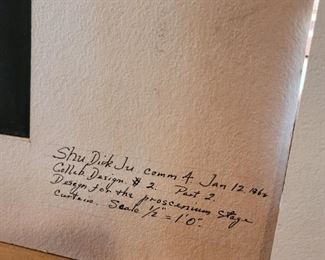 Shu, Dick Ju comm 4 Jan 12 1962
Collab. Design # 2. Part 2.
Design for the proscenium stage
curtain. Scale 1/2" = 1'0".